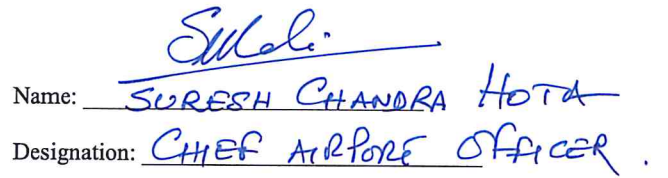 Name: SURESH CHANDRA HOTA
Designation: CHIEF AIRPORT OFFICER.